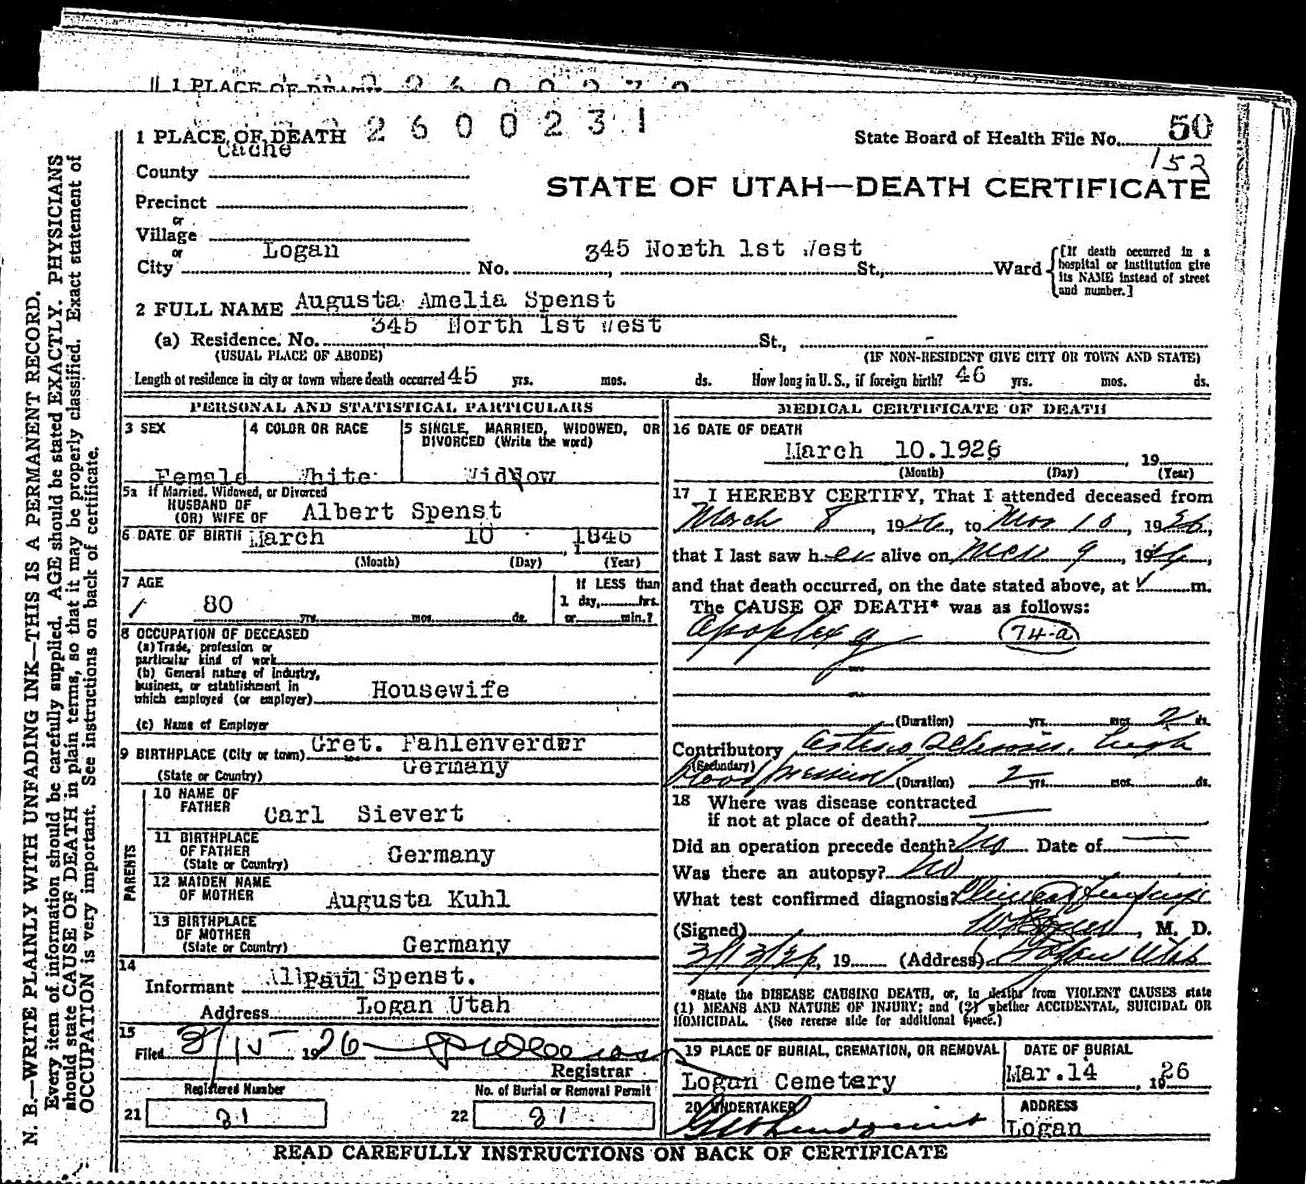 1 PLACE OF DEATH
2600231
State Board of Health File No. 50
153
Cache
County
STATE OF UTAH—DEATH CERTIFICATE
Precinct
or
Village
or
City Logan No. 345 North 1st West St., Ward
[If death occurred in a hospital or institution give its NAME instead of street and number.]
2 FULL NAME Augusta Amelia Spenst
(a) Residence. No. 345 North 1st West St.,
(USUAL PLACE OF ABODE) (IF NON-RESIDENT GIVE CITY OR TOWN AND STATE)
Length of residence in city or town where death occurred 45 yrs. mos. ds. How long in U. S., if foreign birth? 46 yrs. mos. ds.
PERSONAL AND STATISTICAL PARTICULARS
3 SEX
Female
4 COLOR OR RACE
White
5 SINGLE, MARRIED, WIDOWED, OR
DIVORCED (Write the word)
Widow
5a If Married, Widowed, or Divorced
HUSBAND OF
(OR) WIFE OF Albert Spenst
6 DATE OF BIRTH March 10, 1846
(Month) (Day) (Year)
7 AGE
80 yrs. mos. ds.
If LESS than
1 day, hrs.
or min.?
8 OCCUPATION OF DECEASED
(a) Trade, profession or
particular kind of work
(b) General nature of industry,
business, or establishment in
which employed (or employer) Housewife
(c) Name of Employer
9 BIRTHPLACE (City or town) Gret. Fahlenverder
(State or Country) Germany
PARENTS
10 NAME OF
FATHER Carl Sievert
11 BIRTHPLACE
OF FATHER
(State or Country) Germany
12 MAIDEN NAME
OF MOTHER Augusta Kuhl
13 BIRTHPLACE
OF MOTHER
(State or Country) Germany
14
Informant Paul Spenst.
Address Logan Utah
15
Filed 3/15 1926
Registrar
Registered Number
No. of Burial or Removal Permit
21 81
22 81
MEDICAL CERTIFICATE OF DEATH
16 DATE OF DEATH
March 10.1926, 19
(Month) (Day) (Year)
17 I HEREBY CERTIFY, That I attended deceased from
March 8, 1926, to Mar 10, 1926,
that I last saw her alive on Mch 9, 1926,
and that death occurred, on the date stated above, at m.
The CAUSE OF DEATH* was as follows:
Apoplexy 74-a
(Duration) yrs. mos. 2 ds.
Contributory arterio Sclerosis, high
(Secondary) blood pressure (Duration) 2 yrs. mos. ds.
18 Where was disease contracted
if not at place of death?
Did an operation precede death? No Date of —
Was there an autopsy? No
What test confirmed diagnosis? Clinical
(Signed) M. D.
3/13/26, 19 (Address) Logan Utah
*State the DISEASE CAUSING DEATH, or, in deaths from VIOLENT CAUSES state
(1) MEANS AND NATURE OF INJURY; and (2) whether ACCIDENTAL, SUICIDAL OR
HOMICIDAL. (See reverse side for additional space.)
19 PLACE OF BURIAL, CREMATION, OR REMOVAL
Logan Cemetery
DATE OF BURIAL
Mar.14, 1926
20 UNDERTAKER
ADDRESS
Logan
READ CAREFULLY INSTRUCTIONS ON BACK OF CERTIFICATE
N. B.—WRITE PLAINLY WITH UNFADING INK—THIS IS A PERMANENT RECORD.
Every item of information should be carefully supplied. AGE should be stated EXACTLY. PHYSICIANS
should state CAUSE OF DEATH in plain terms, so that it may be properly classified. Exact statement of
OCCUPATION is very important. See instructions on back of certificate.